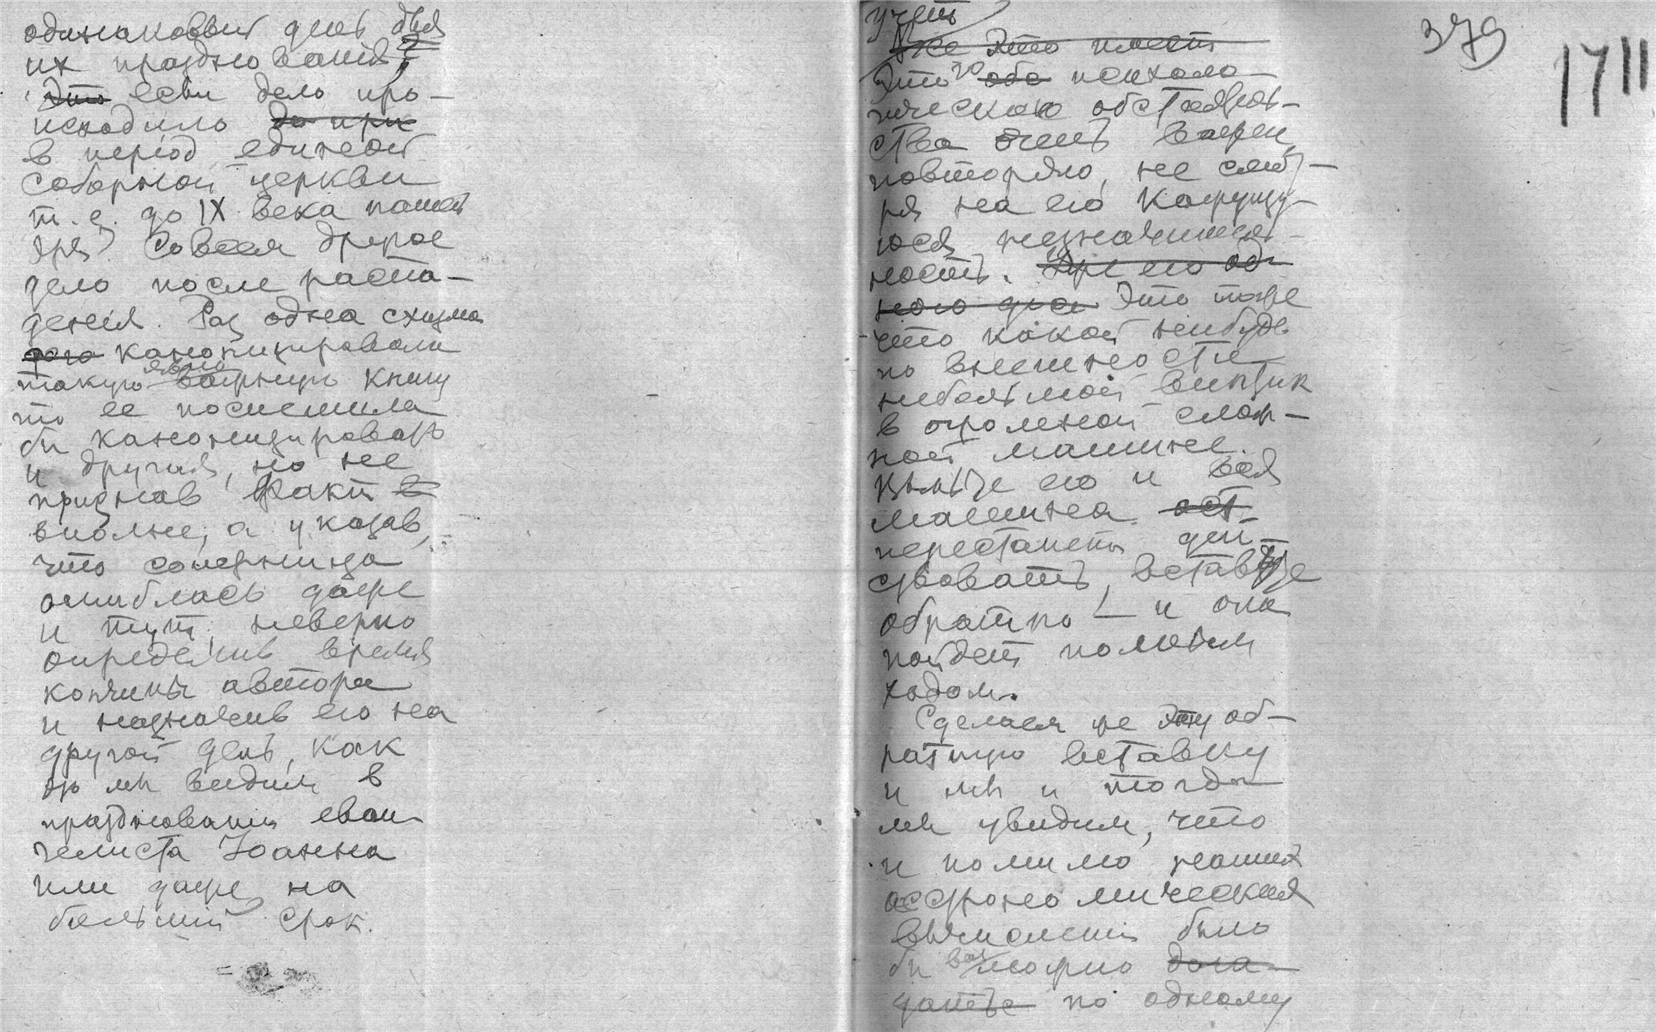 одинаковый день для
их празднования?
Это если дело про-
исходило до при
в период единой
соборной церкви
т. е. до IX века нашей
эры. Совсем другое
дело после распа-
дения. Раз одна схизма
того канонизировала
такую важную книгу
то ее поспешила
бы канонизировать
и другая, но не
признав факт в
вполне, а указав,
что соперница
ошиблась даже
и тут, неверно
определив время
кончины автора
и назначив его на
другой день, как
это мы видим в
праздновании еван-
гелиста Иоанна
или даже на
больший срок.
379
1711
учесть
Уже это имеет
Это го обо психоло-
гического обстоятель-
ства очень важен,
повторяю, не смот-
ря на его кажущу-
юся незначитель-
ность. Уже его од-
ного дня Это тоже
что какой нибудь
по внешности
небольшой винтик
в огромной слож-
ной машине.
Выньте его и вся
машина ост
перестанет дей-
ствовать, вставьте
обратно — и она
пойдет полным
ходом.
Сделаем же эту об-
ратную вставку
и мы и тогда
мы увидим, что
и помимо наших
астрономических
вычислений было
бы возможно дога-
даться по одному